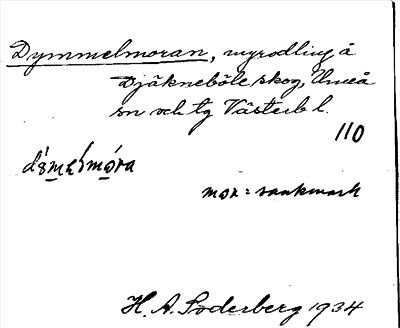 Dymmelmoran, myrodling å
Djäkneböle skog, Umeå
sn och tg Västerb l.
110
mor = sankmark
H. A. Söderberg 1934